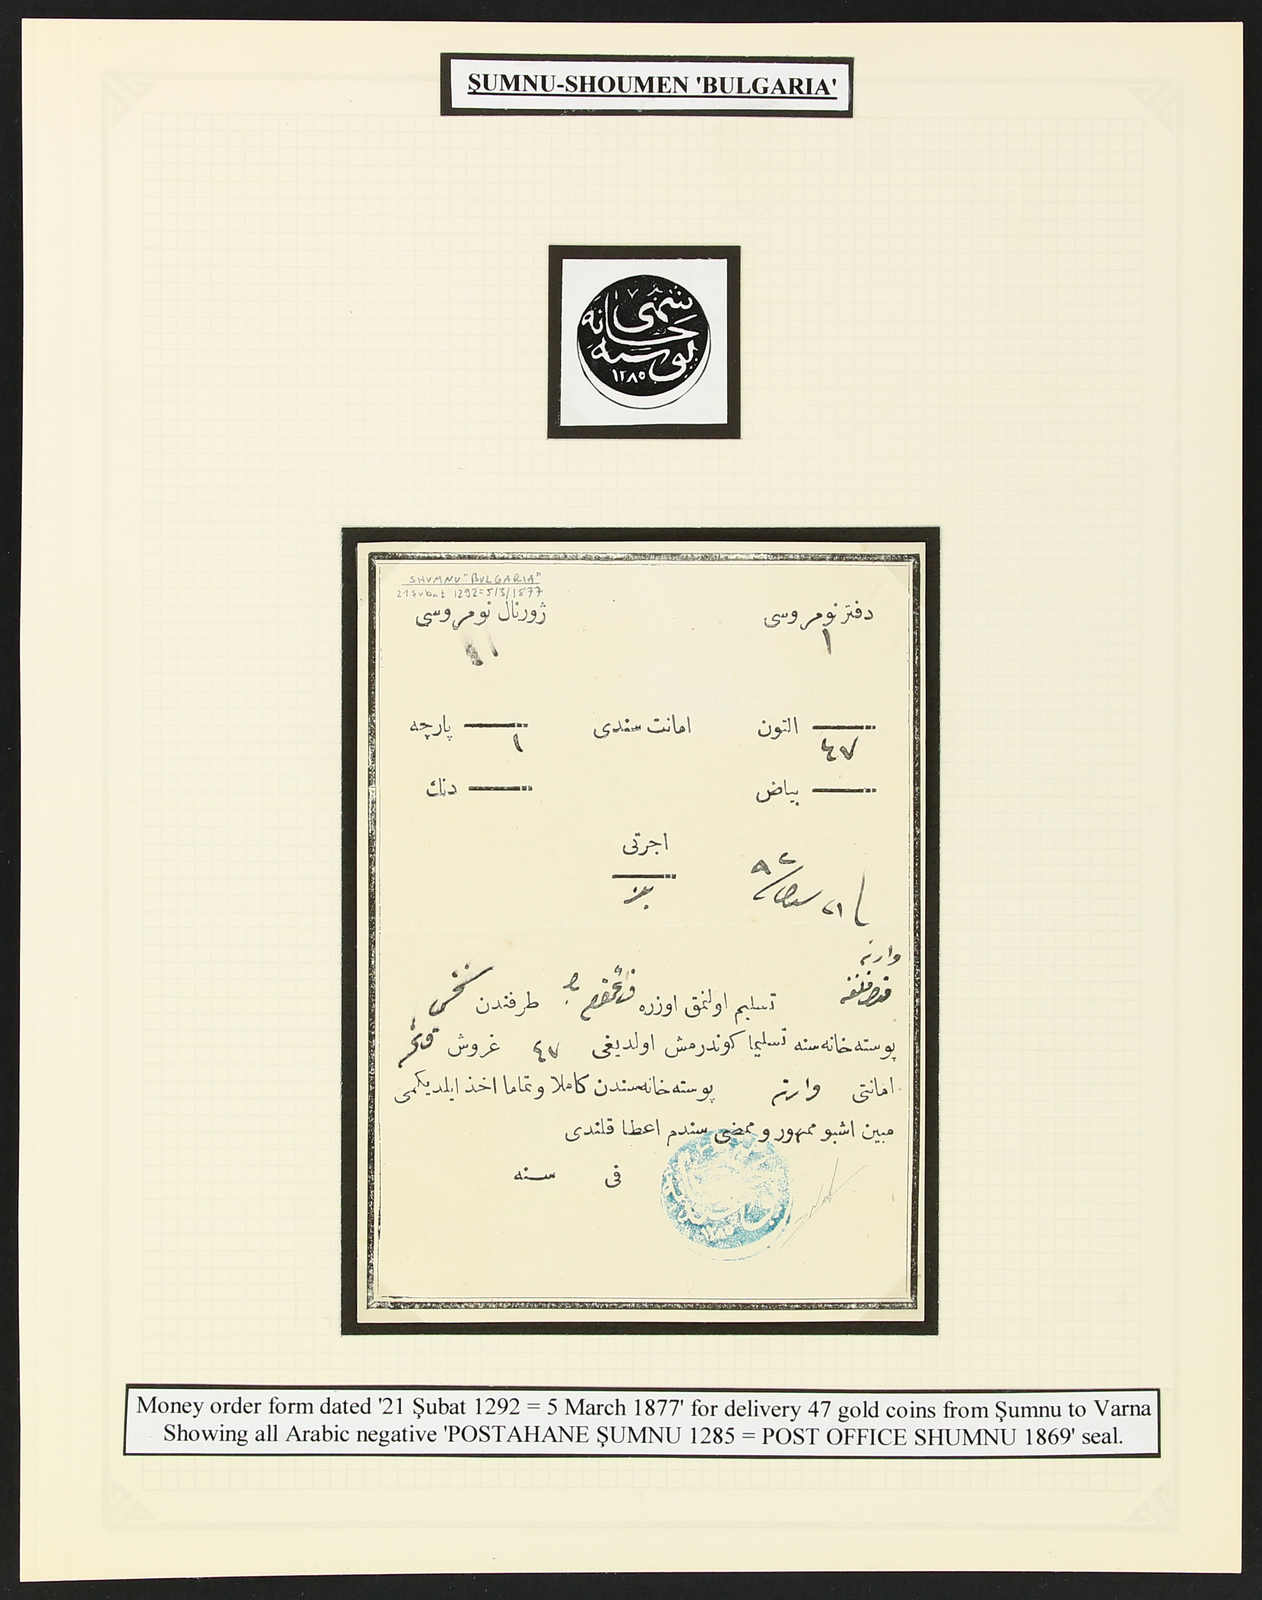 ŞUMNU-SHOUMEN 'BULGARIA'
شمنی
خانه
پوسته
١٢٨٥
SHUMNU "BULGARIA"
21 Şubat 1292=5/3/1877
دفتر نومروسی
ژورنال نومروسی
١
التون
امانت سندی
پارچه
٤٧
١
بیاض
دنك
اجرتی
٢١
٩٢
وارنه
تسلیم اولنمق اوزره
طرفندن
پوسته خانه سنه تسلیما کوندرمش اولدیغی ٤٧ غروش
امانتی وارنه پوسته خانه سندن کاملا و تماما اخذ ایلدیکمی
مبین اشبو ممهور و ممضی سندم اعطا قلندی
فی سنه
Money order form dated '21 Şubat 1292 = 5 March 1877' for delivery 47 gold coins from Şumnu to Varna
Showing all Arabic negative 'POSTAHANE ŞUMNU 1285 = POST OFFICE SHUMNU 1869' seal.